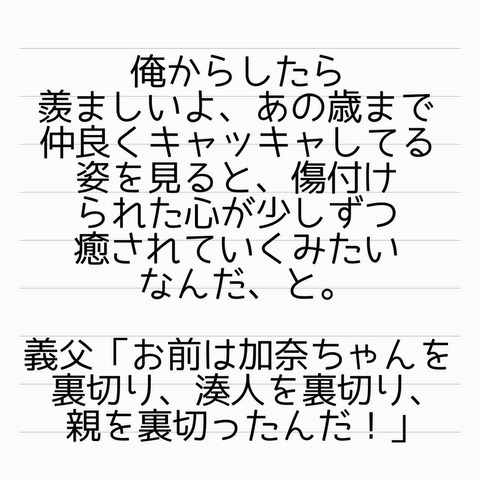 俺からしたら
羨ましいよ、あの歳まで
仲良くキャッキャしてる
姿を見ると、傷付け
られた心が少しずつ
癒されていくみたい
なんだ、と。
義父「お前は加奈ちゃんを
裏切り、湊人を裏切り、
親を裏切ったんだ！」